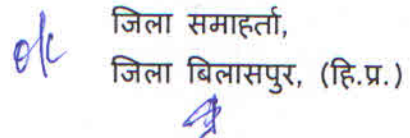 o/c जिला समाहर्ता,
जिला बिलासपुर, (हि.प्र.)